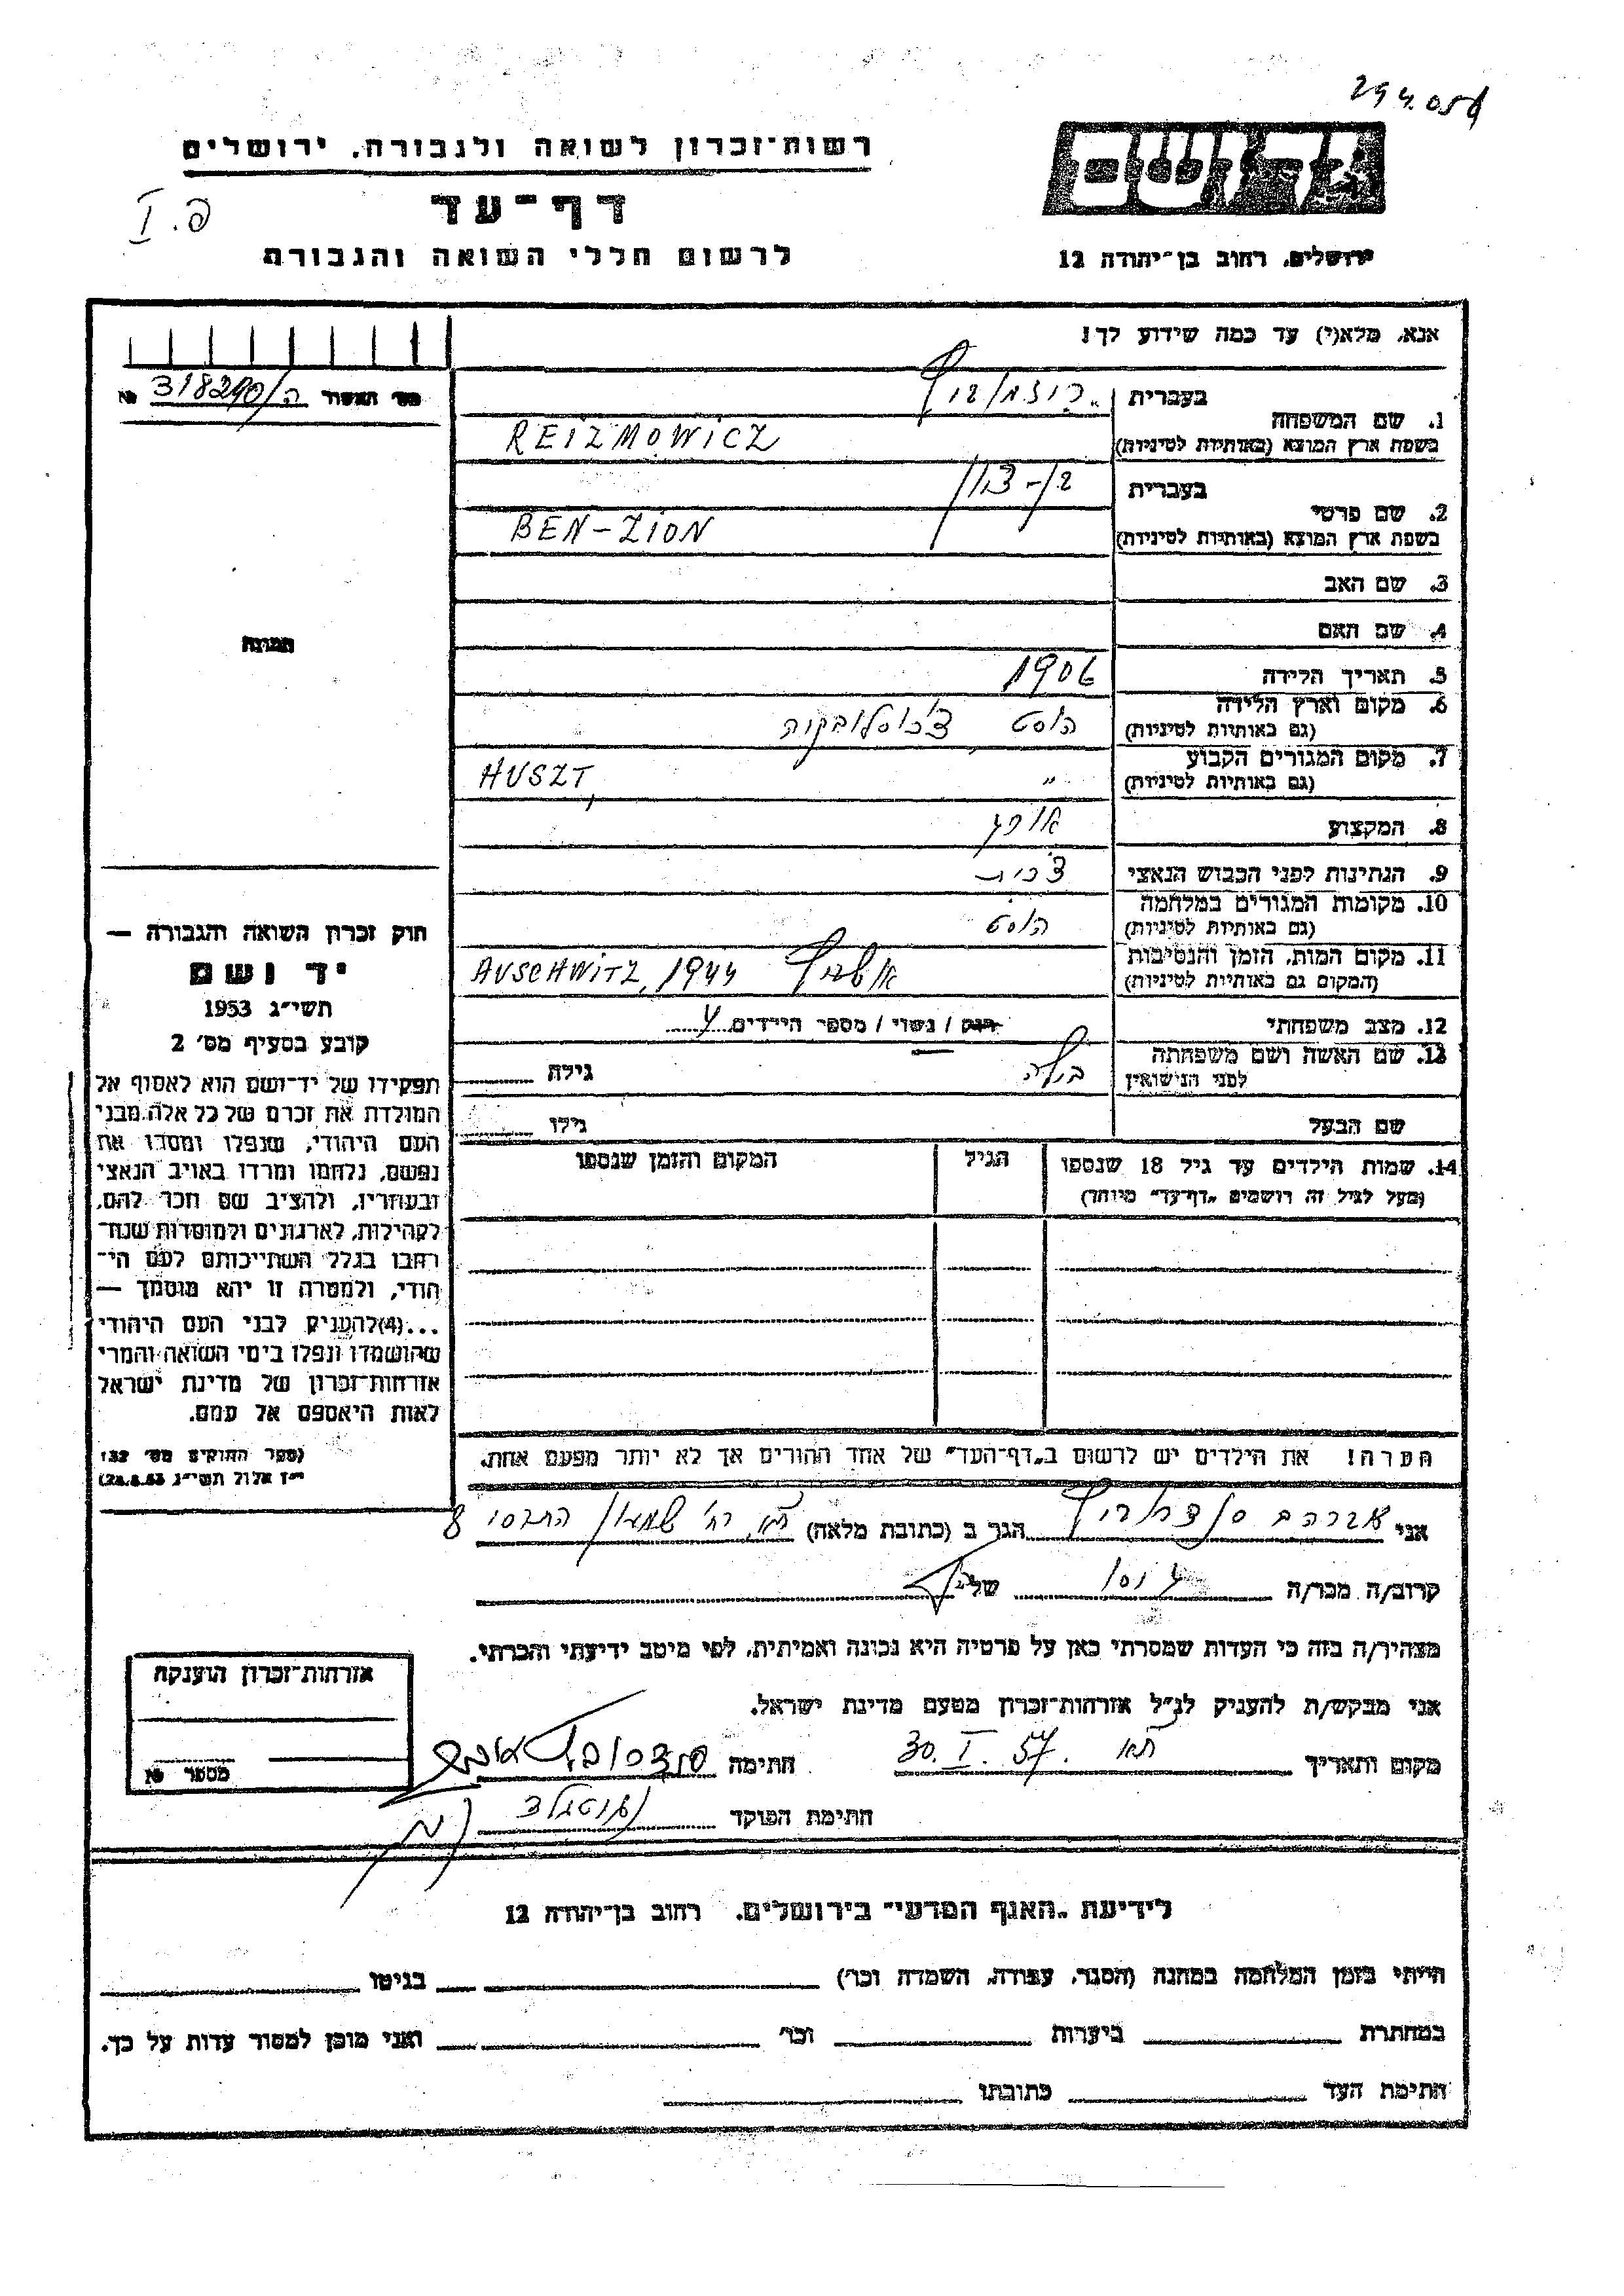 294.056
רשות־זכרון לשואה ולגבורה, ירושלים
דף־עד
I .פ
לרשום חללי השואה והגבורה
ירושלים, רחוב בן־יהודה 12
אנא, מלא(י) עד כמה שידוע לך!
מס' האשור ה/318290 №
בעברית
1. שם המשפחה
בשפת ארץ המוצא (באותיות לטיניות)
REIZMOWICZ
בעברית בן-ציון
2. שם פרטי
בשפת ארץ המוצא (באותיות לטיניות)
BEN-ZION
3. שם האב
4. שם האם
תמונה
5. תאריך הלידה 1906
6. מקום וארץ הלידה
(גם באותיות לטיניות) הוסט צ'כוסלובקיה
7. מקום המגורים הקבוע
(גם באותיות לטיניות) " HUSZT,
8. המקצוע אופה
9. הנתינות לפני הכבוש הנאצי צ'כית
10. מקומות המגורים במלחמה
(גם באותיות לטיניות) הוסט
11. מקום המות, הזמן והנסיבות
(המקום גם באותיות לטיניות) אושביץ AUSCHWITZ, 1944
12. מצב משפחתי רווק / נשוי / מספר הילדים 4
13. שם האשה ושם משפחתה
לפני הנישואין גילה
שם הבעל גילו
14. שמות הילדים עד גיל 18 שנספו
(מעל לגיל זה רושמים "דף־עד" מיוחד)
הגיל
המקום והזמן שנספו
חוק זכרון השואה והגבורה —
יד ושם
תשי״ג 1953
קובע בסעיף מס׳ 2
תפקידו של יד־ושם הוא לאסוף אל
המולדת את זכרם של כל אלה מבני
העם היהודי, שנפלו ומסרו את
נפשם, נלחמו ומרדו באויב הנאצי
ובעוזריו, ולהציב שם וזכר להם,
לקהילות, לארגונים ולמוסדות שנח־
רבו בגלל השתייכותם לעם הי־
הודי, ולמטרה זו יהא מוסמך —
...(4)להעניק לבני העם היהודי
שהושמדו ונפלו בימי השואה והמרי
אזרחות־זכרון של מדינת ישראל
לאות היאספם אל עמם.
(ספר החוקים מס׳ 132
י״ז אלול תשי״ג 28.8.53)
הערה! את הילדים יש לרשום ב״דף־העד״ של אחד ההורים אך לא יותר מפעם אחת.
אני אברהם הגר ב (כתובת מלאה) ת"א, רח' שמעון התרסי 8
קרוב/ה מכר/ה גיסו של
מצהיר/ה בזה כי העדות שמסרתי כאן על פרטיה היא נכונה ואמיתית, לפי מיטב ידיעתי והכרתי.
אני מבקש/ת להעניק לנ״ל אזרחות־זכרון מטעם מדינת ישראל.
מקום ותאריך ת"א 30. I. 57 חתימה
חתימת הפוקד
אזרחות־זכרון הוענקה
מספר №
לידיעת "האגף המדעי" בירושלים, רחוב בן־יהודה 12
הייתי בזמן המלחמה במחנה (הסגר, עבודה, השמדה וכו׳) בגיטו
במחתרת ביערות וכו׳ ואני מוכן למסור עדות על כך.
חתימת העד כתובתו